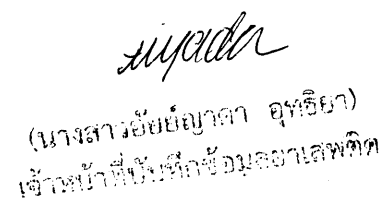 (นางสาวอัยย์ญาดา อุทธิยา)
เจ้าหน้าที่บันทึกข้อมูลยาเสพติด